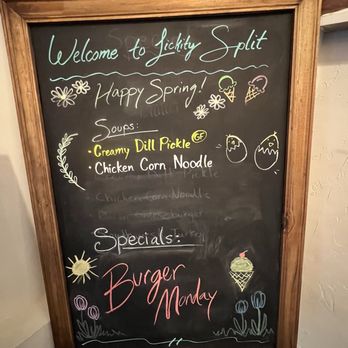 Welcome to Lickity Split
Happy Spring!
Soups:
• Creamy Dill Pickle GF
• Chicken Corn Noodle
Specials:
Burger
Monday